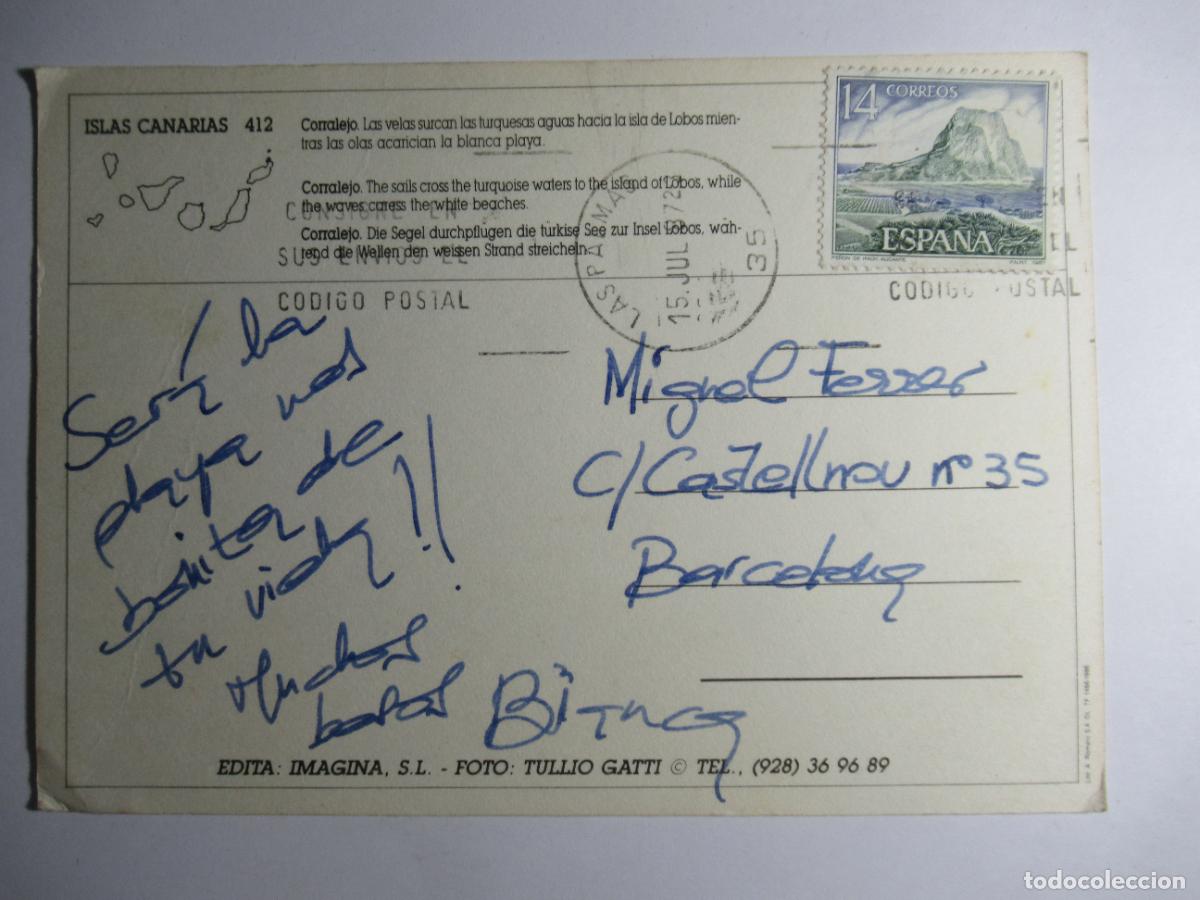 ISLAS CANARIAS 412
Corralejo. Las velas surcan las turquesas aguas hacia la isla de Lobos mien-
tras las olas acarician la blanca playa.
Corralejo. The sails cross the turquoise waters to the island of Lobos, while
the waves caress the white beaches.
Corralejo. Die Segel durchpflügen die türkise See zur Insel Lobos, wäh-
rend die Wellen den weissen Strand streicheln.
CONSIGNE EN
SUS ENVIOS EL
CODIGO POSTAL
LAS PALMAS
15. JUL 87
35
14 CORREOS
ESPAÑA
CODIGO POSTAL
Será la
playa mas
bonita de
tu vida!!
Muchos
besos Bianca
Miguel Ferrer
C/ Castellnou nº 35
Barcelona
EDITA: IMAGINA, S.L. - FOTO: TULLIO GATTI © TEL., (928) 36 96 89
todocoleccion